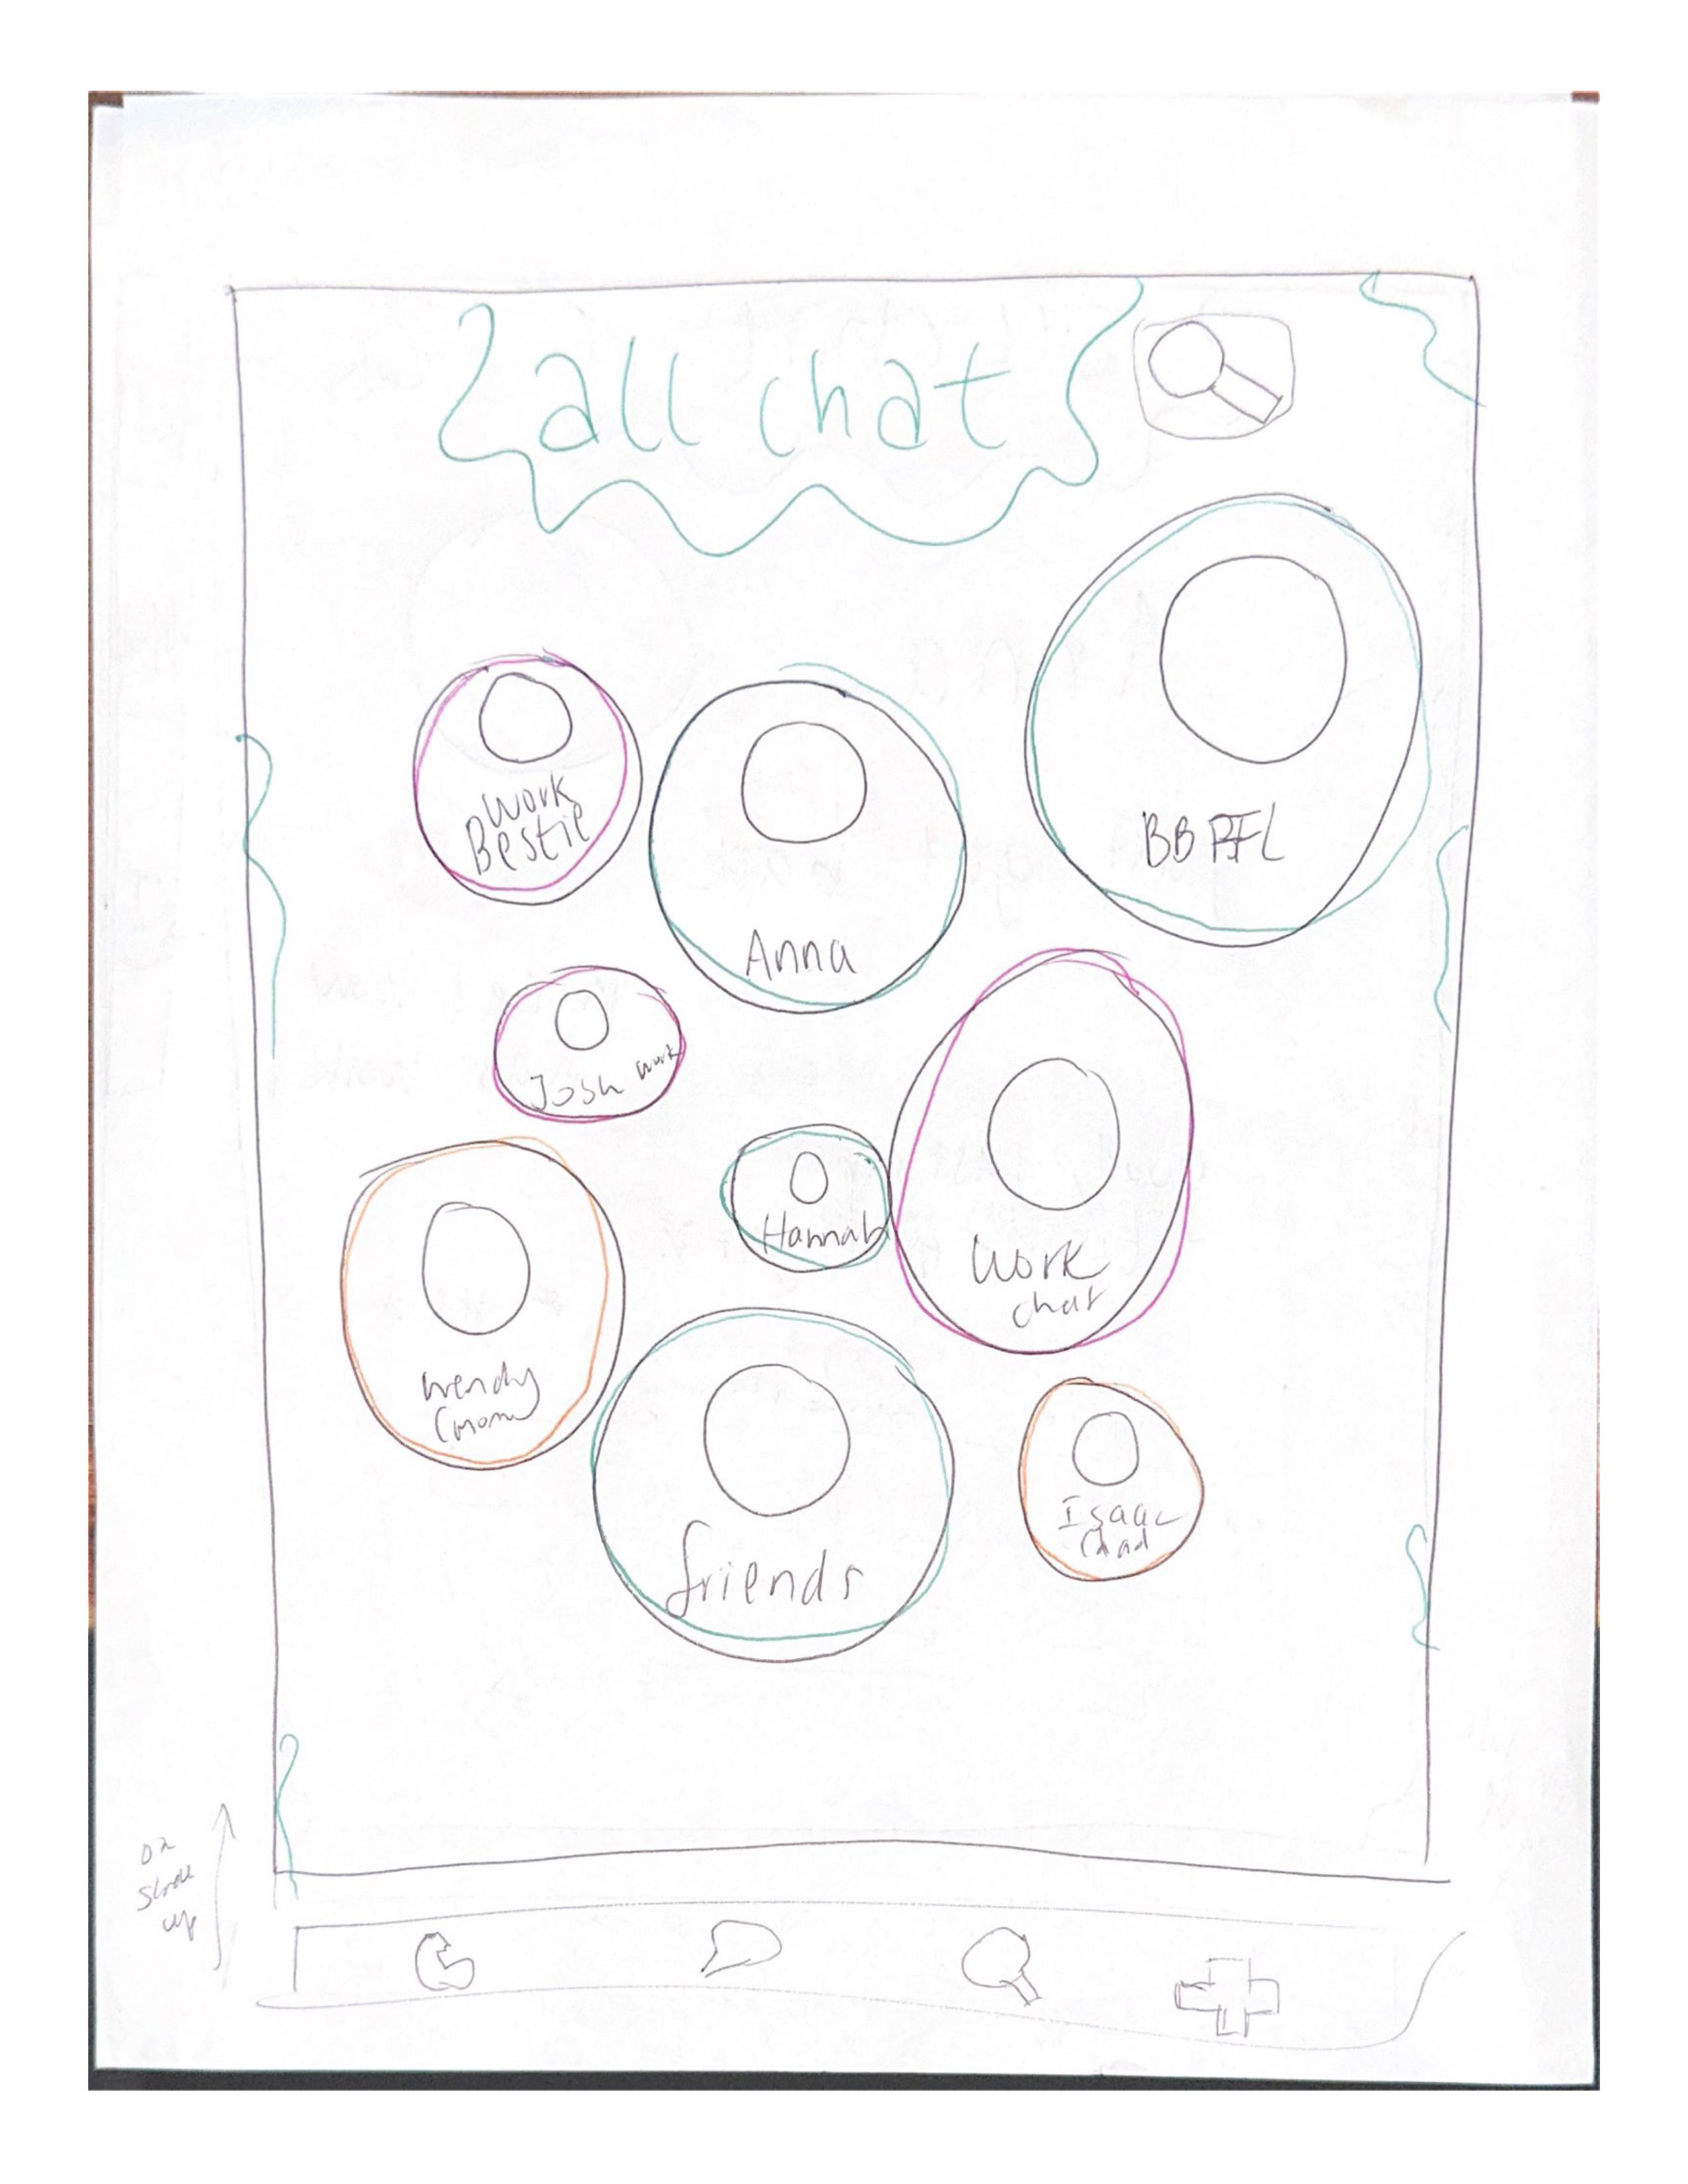 all chat
BB FFL
Work
Bestie
Anna
Josh work
Hannah
Work
chat
Wendy
(mom
friends
Isaac
(dad
on
scroll
up